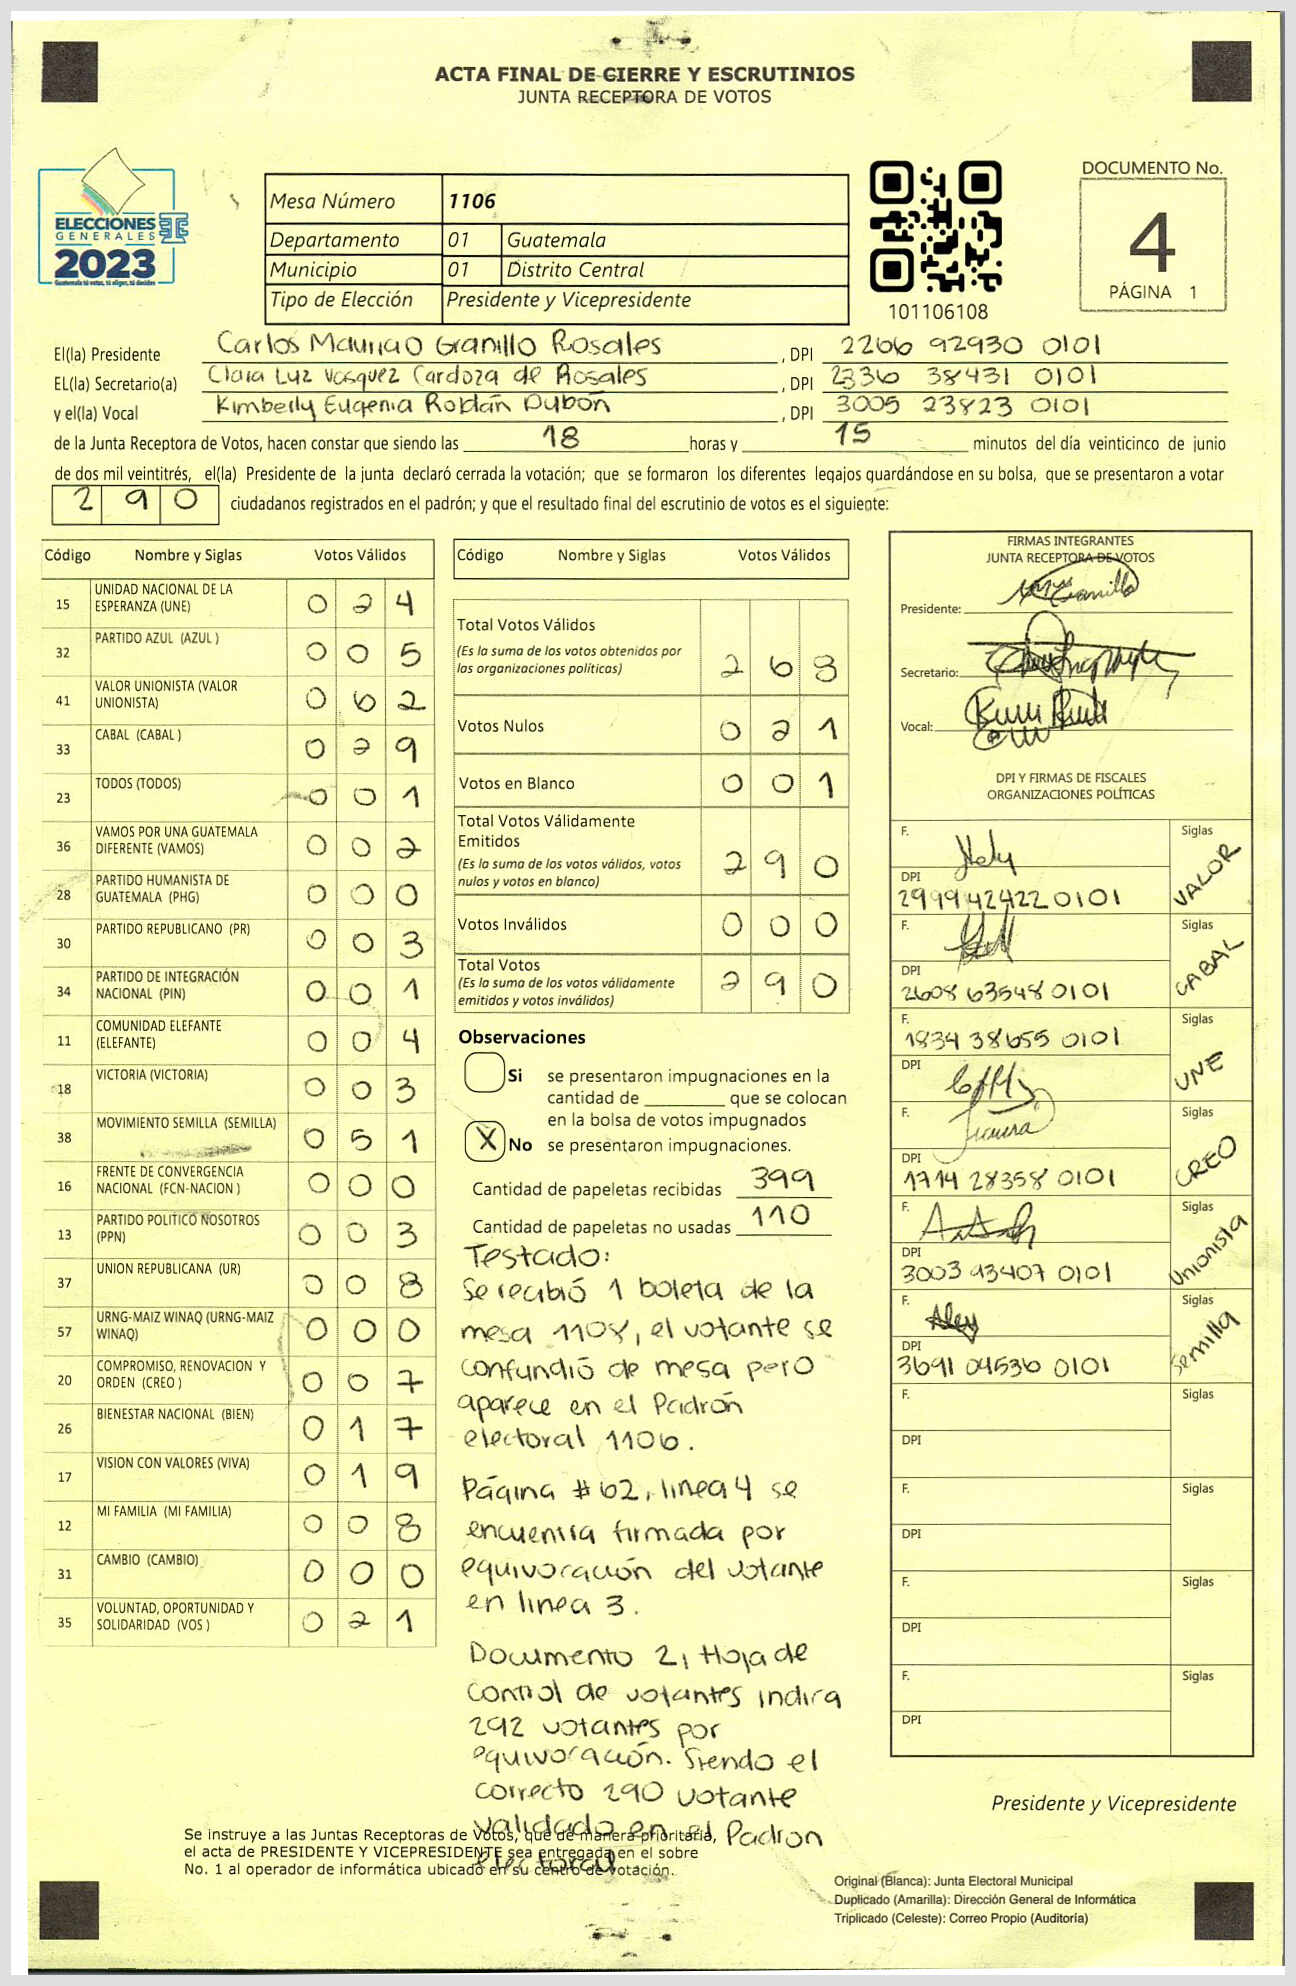 ACTA FINAL DE CIERRE Y ESCRUTINIOS
JUNTA RECEPTORA DE VOTOS
ELECCIONES
GENERALES
2023
Guatemala tú votas, tú eliges, tú decides
Mesa Número 1106
Departamento 01 Guatemala
Municipio 01 Distrito Central
Tipo de Elección Presidente y Vicepresidente
101106108
DOCUMENTO No.
4
PÁGINA 1
El(la) Presidente Carlos Mauricio Granillo Rosales , DPI 2266 92930 0101
EL(la) Secretario(a) Clara Luz Vasquez Cardoza de Rosales , DPI 2336 38431 0101
y el(la) Vocal Kimberly Eugenia Roldán Dubón , DPI 3005 23823 0101
de la Junta Receptora de Votos, hacen constar que siendo las 18 horas y 15 minutos del día veinticinco de junio
de dos mil veintitrés, el(la) Presidente de la junta declaró cerrada la votación; que se formaron los diferentes legajos guardándose en su bolsa, que se presentaron a votar
290 ciudadanos registrados en el padrón; y que el resultado final del escrutinio de votos es el siguiente:
Código Nombre y Siglas Votos Válidos
15 UNIDAD NACIONAL DE LA ESPERANZA (UNE) 0 2 4
32 PARTIDO AZUL (AZUL ) 0 0 5
41 VALOR UNIONISTA (VALOR UNIONISTA) 0 6 2
33 CABAL (CABAL ) 0 2 9
23 TODOS (TODOS) 0 0 1
36 VAMOS POR UNA GUATEMALA DIFERENTE (VAMOS) 0 0 2
28 PARTIDO HUMANISTA DE GUATEMALA (PHG) 0 0 0
30 PARTIDO REPUBLICANO (PR) 0 0 3
34 PARTIDO DE INTEGRACIÓN NACIONAL (PIN) 0 0 1
11 COMUNIDAD ELEFANTE (ELEFANTE) 0 0 4
18 VICTORIA (VICTORIA) 0 0 3
38 MOVIMIENTO SEMILLA (SEMILLA) 0 5 1
16 FRENTE DE CONVERGENCIA NACIONAL (FCN-NACION ) 0 0 0
13 PARTIDO POLITICO NOSOTROS (PPN) 0 0 3
37 UNION REPUBLICANA (UR) 0 0 8
57 URNG-MAIZ WINAQ (URNG-MAIZ WINAQ) 0 0 0
20 COMPROMISO, RENOVACION Y ORDEN (CREO ) 0 0 7
26 BIENESTAR NACIONAL (BIEN) 0 1 7
17 VISION CON VALORES (VIVA) 0 1 9
12 MI FAMILIA (MI FAMILIA) 0 0 8
31 CAMBIO (CAMBIO) 0 0 0
35 VOLUNTAD, OPORTUNIDAD Y SOLIDARIDAD (VOS ) 0 2 1
Código Nombre y Siglas Votos Válidos
Total Votos Válidos
(Es la suma de los votos obtenidos por
las organizaciones políticas) 2 6 8
Votos Nulos 0 2 1
Votos en Blanco 0 0 1
Total Votos Válidamente
Emitidos
(Es la suma de los votos válidos, votos
nulos y votos en blanco) 2 9 0
Votos Inválidos 0 0 0
Total Votos
(Es la suma de los votos válidamente
emitidos y votos inválidos) 2 9 0
Observaciones
Si se presentaron impugnaciones en la
cantidad de que se colocan
en la bolsa de votos impugnados
X No se presentaron impugnaciones.
Cantidad de papeletas recibidas 399
Cantidad de papeletas no usadas 110
Testado:
Se recibió 1 boleta de la
mesa 1108, el votante se
confundió de mesa pero
aparece en el Padrón
electoral 1106.
Página #62, linea 4 se
encuentra firmada por
equivocación del votante
en linea 3.
Documento 2, Hoja de
control de votantes indica
292 votantes por
equivocación. Siendo el
correcto 290 votante
validado en el Padron
electoral
FIRMAS INTEGRANTES
JUNTA RECEPTORA DE VOTOS
Presidente:
Secretario:
Vocal:
DPI Y FIRMAS DE FISCALES
ORGANIZACIONES POLÍTICAS
F. Siglas VALOR
DPI
2999 42422 0101
F. Siglas CABAL
DPI
2608 63548 0101
F. Siglas UNE
1834 38655 0101
DPI
F. Siglas CREO
DPI
1714 28358 0101
F. Siglas Unionista
DPI
3003 93407 0101
F. Siglas Semilla
DPI
3691 04536 0101
F. Siglas
DPI
F. Siglas
DPI
F. Siglas
DPI
F. Siglas
DPI
Presidente y Vicepresidente
Se instruye a las Juntas Receptoras de Votos, que de manera prioritaria,
el acta de PRESIDENTE Y VICEPRESIDENTE sea entregada en el sobre
No. 1 al operador de informática ubicado en su centro de votación.
Original (Blanca): Junta Electoral Municipal
Duplicado (Amarilla): Dirección General de Informática
Triplicado (Celeste): Correo Propio (Auditoría)